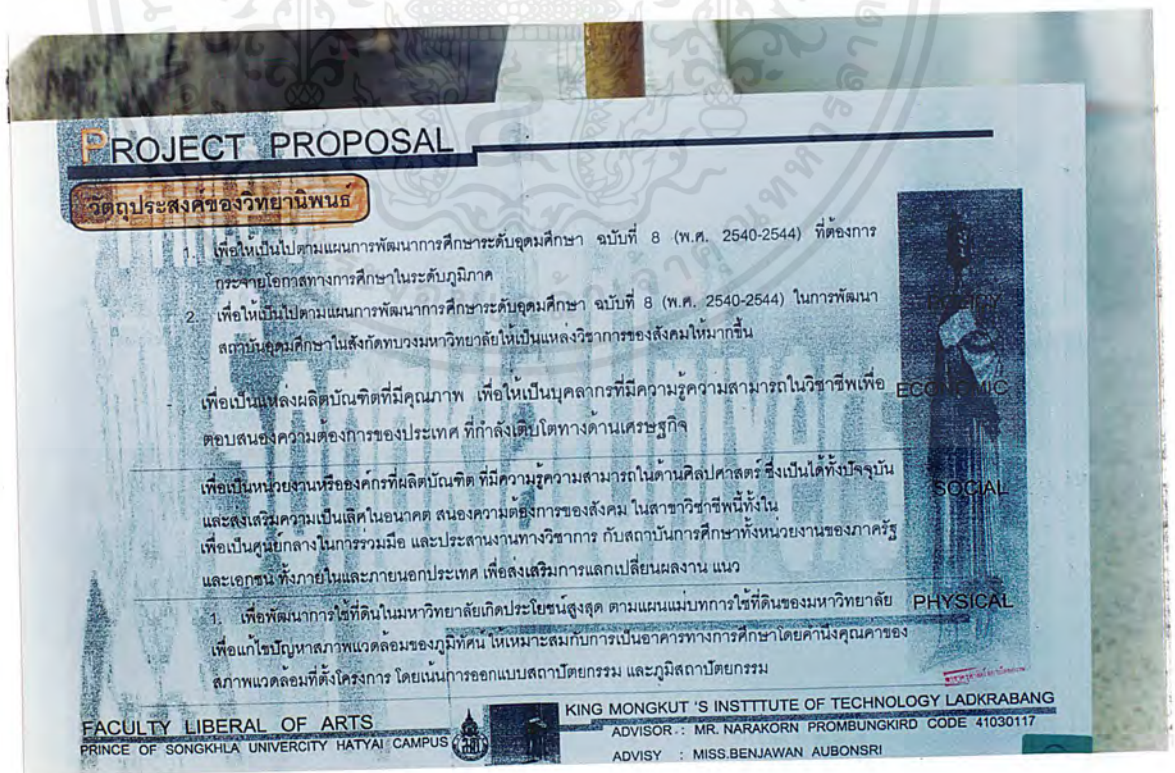 PROJECT PROPOSAL
วัตถุประสงค์ของวิทยานิพนธ์
1. เพื่อให้เป็นไปตามแผนการพัฒนาการศึกษาระดับอุดมศึกษา ฉบับที่ 8 (พ.ศ. 2540-2544) ที่ต้องการ
กระจายโอกาสทางการศึกษาในระดับภูมิภาค
2. เพื่อให้เป็นไปตามแผนการพัฒนาการศึกษาระดับอุดมศึกษา ฉบับที่ 8 (พ.ศ. 2540-2544) ในการพัฒนา
สถาบันอุดมศึกษาในสังกัดทบวงมหาวิทยาลัยให้เป็นแหล่งวิชาการของสังคมให้มากขึ้น
POLICY
เพื่อเป็นแหล่งผลิตบัณฑิตที่มีคุณภาพ เพื่อให้เป็นบุคลากรที่มีความรู้ความสามารถในวิชาชีพเพื่อ
ตอบสนองความต้องการของประเทศ ที่กำลังเติบโตทางด้านเศรษฐกิจ
ECONOMIC
เพื่อเป็นหน่วยงานหรือองค์กรที่ผลิตบัณฑิต ที่มีความรู้ความสามารถในด้านศิลปศาสตร์ ซึ่งเป็นได้ทั้งปัจจุบัน
และส่งเสริมความเป็นเลิศในอนาคต สนองความต้องการของสังคม ในสาขาวิชาชีพนี้ทั้งใน
เพื่อเป็นศูนย์กลางในการรวมมือ และประสานงานทางวิชาการ กับสถาบันการศึกษาทั้งหน่วยงานของภาครัฐ
และเอกชน ทั้งภายในและภายนอกประเทศ เพื่อส่งเสริมการแลกเปลี่ยนผลงาน แนว
SOCIAL
1. เพื่อพัฒนาการใช้ที่ดินในมหาวิทยาลัยเกิดประโยชน์สูงสุด ตามแผนแม่บทการใช้ที่ดินของมหาวิทยาลัย
เพื่อแก้ไขปัญหาสภาพแวดล้อมของภูมิทัศน์ ให้เหมาะสมกับการเป็นอาคารทางการศึกษาโดยคำนึงคุณคาของ
สภาพแวดล้อมที่ตั้งโครงการ โดยเน้นการออกแบบสถาปัตยกรรม และภูมิสถาปัตยกรรม
PHYSICAL
FACULTY LIBERAL OF ARTS
PRINCE OF SONGKHLA UNIVERCITY HATYAI CAMPUS
KING MONGKUT 'S INSTTTUTE OF TECHNOLOGY LADKRABANG
ADVISOR : MR. NARAKORN PROMBUNGKIRD CODE 41030117
ADVISY : MISS.BENJAWAN AUBONSRI